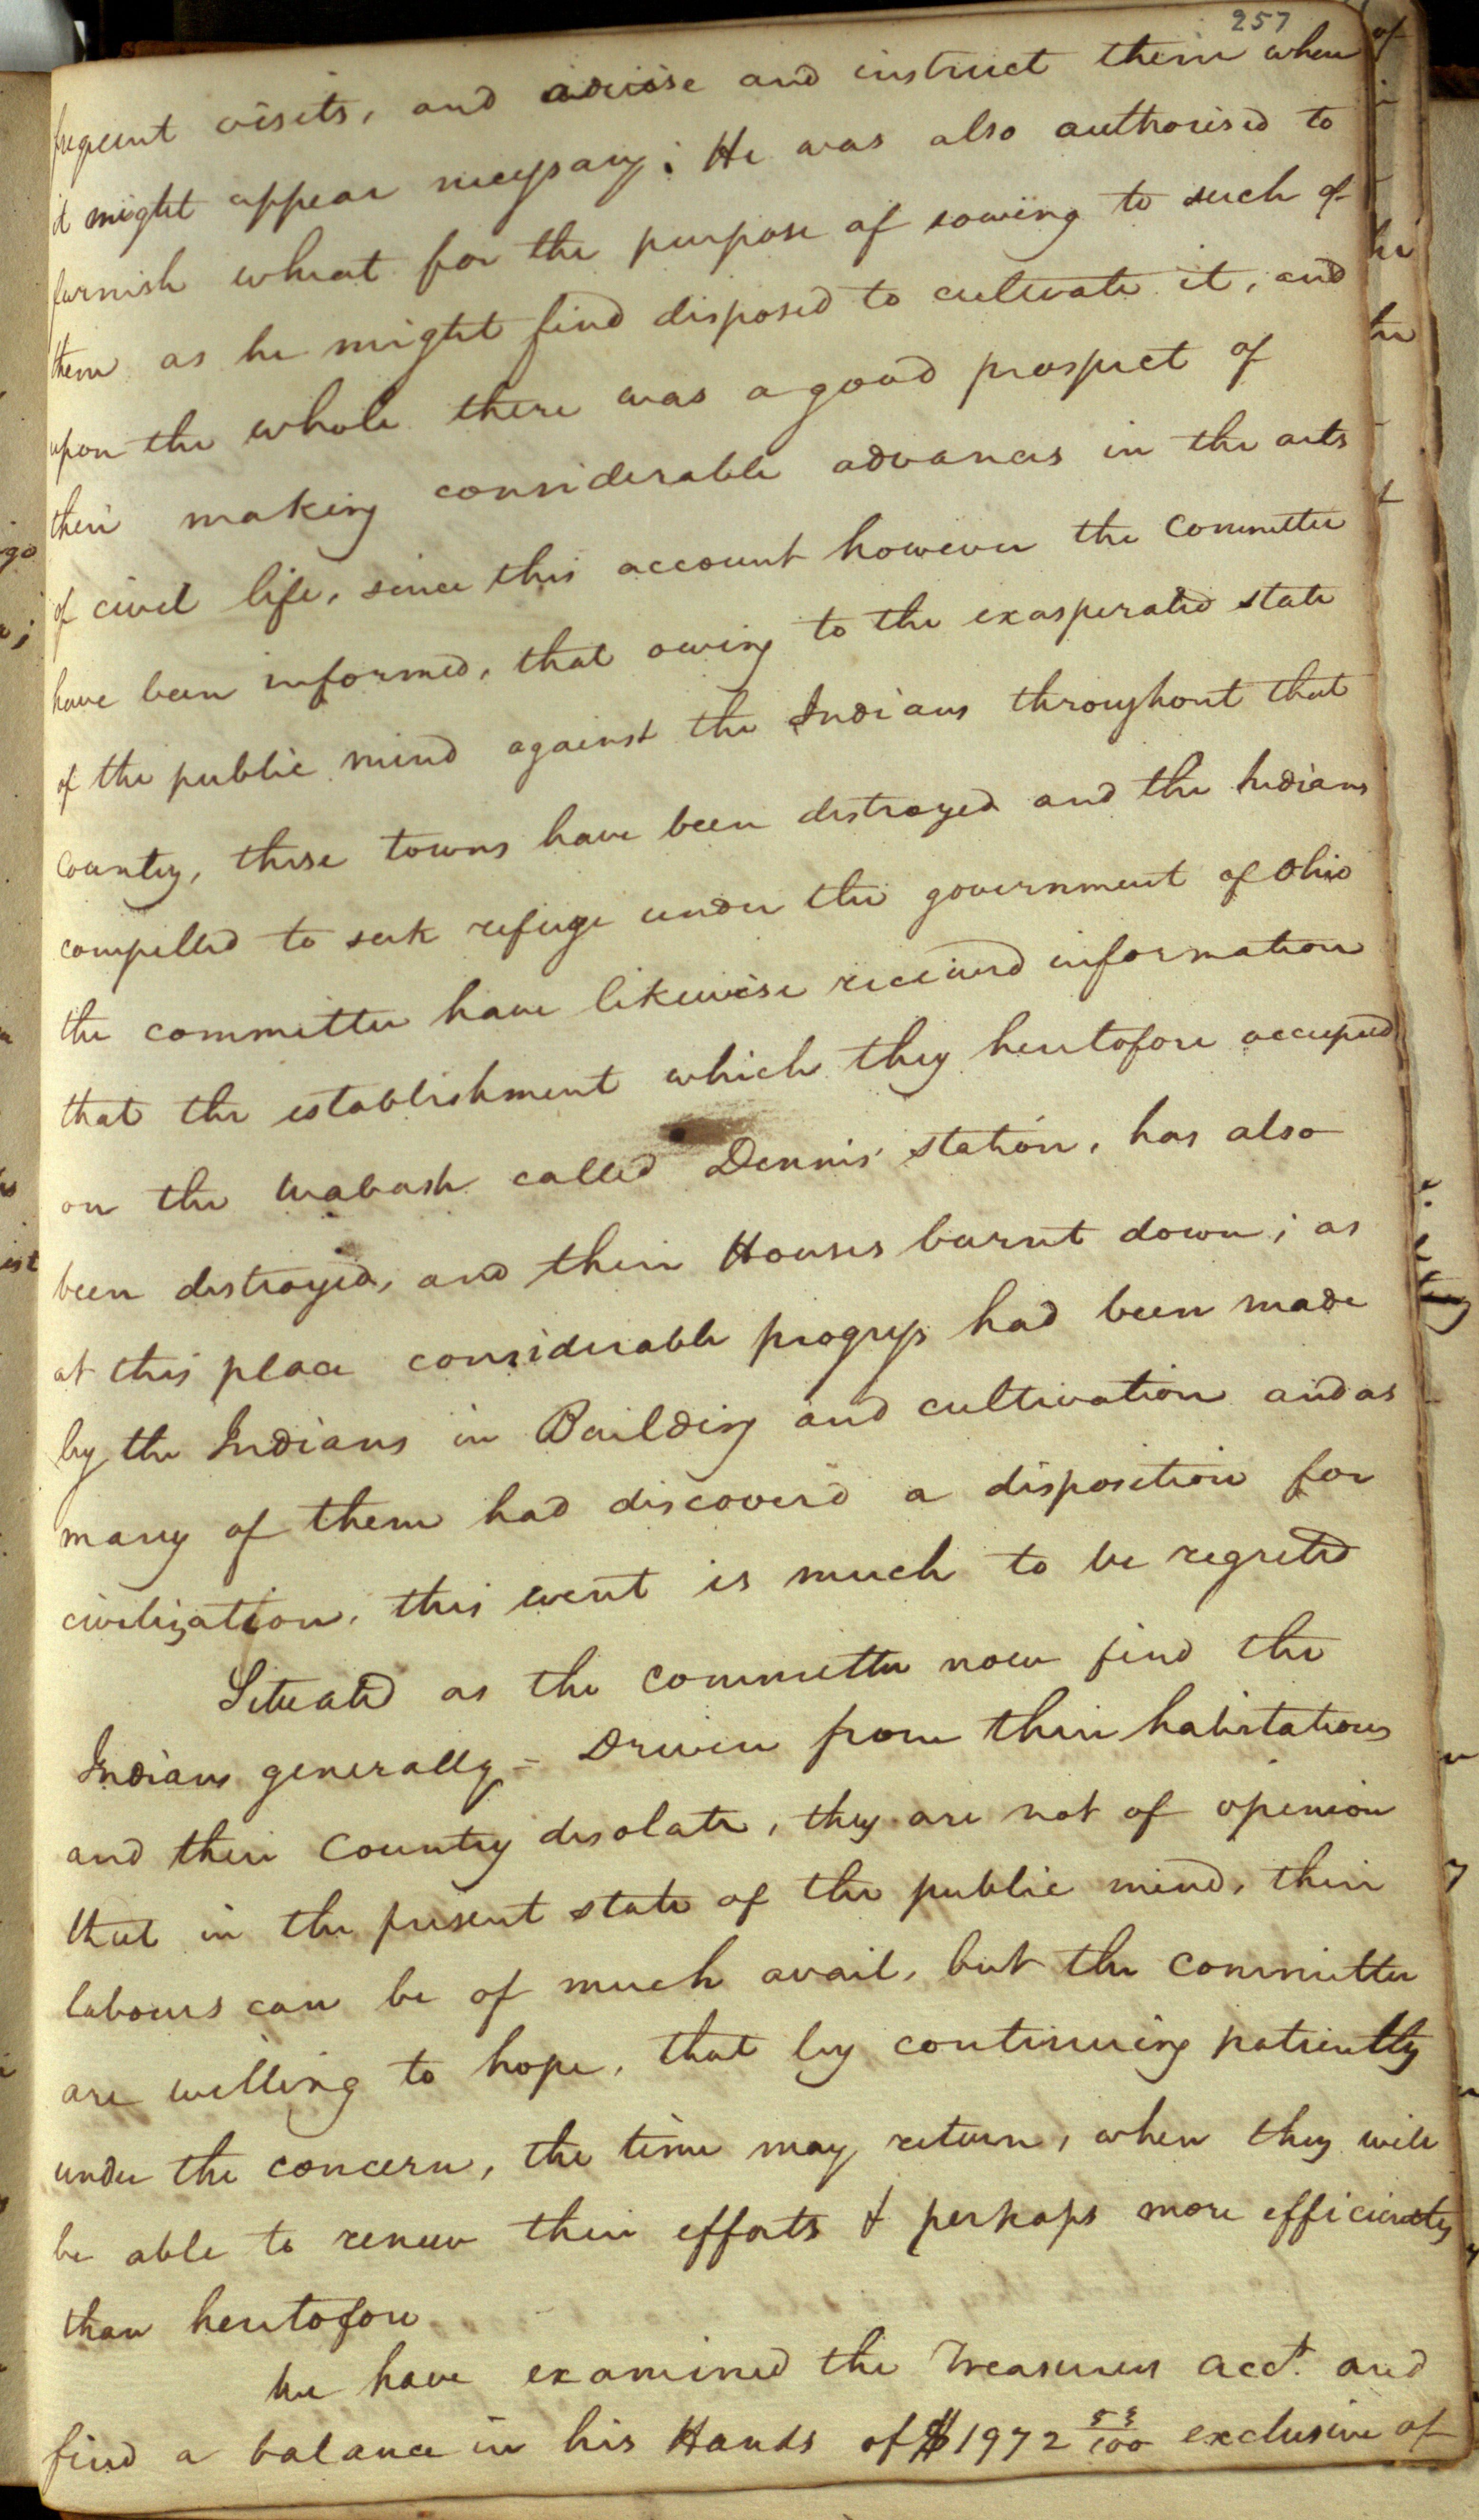 257
frequent visits, and advise and instruct them when
it might appear necessary; He was also authorised to
furnish wheat for the purpose of sowing to such of
them as he might find disposed to cultivate it, and
upon the whole there was a good prospect of
their making considerable advances in the arts
of civil life, since this account however the Committee
have been informed, that owing to the exasperated state
of the public mind against the Indians throughout that
County, these towns have been destroyed and the Indians
compelled to seek refuge under the government of Ohio
the committee have likewise received information
that the establishment which they heretofore occupied
on the Wabash called Dennis' station, has also
been destroyed, and their Houses burnt down; as
at this place considerable progress had been made
by the Indians in Building and cultivation and as
many of them had discover'd a disposition for
civilization, this event is much to be regreted
Situated as the Committee now find the
Indians generally - Driven from their habitations
and their Country desolate, they are not of opinion
that in the present state of the public mind, their
labours can be of much avail, but the Committee
are willing to hope, that by continuing patiently
under the concern, the time may return, when they will
be able to renew their efforts & perhaps more efficiently
than heretofore
We have examined the Treasurers acct. and
find a balance in his Hands of $1972 53/100 exclusive of